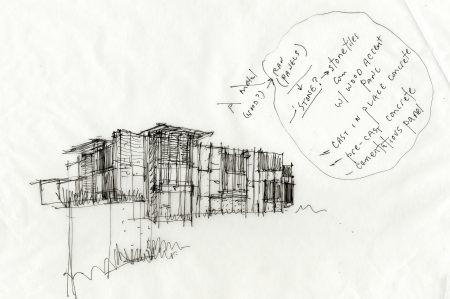 metal
(WHO?)
RAN
(PANELS)
- "STONE"? → stone tiles
W/ WOOD ACCENT
PANL
CAST IN PLACE CONCRETE
pre-CAST concrete
- cementatious panel